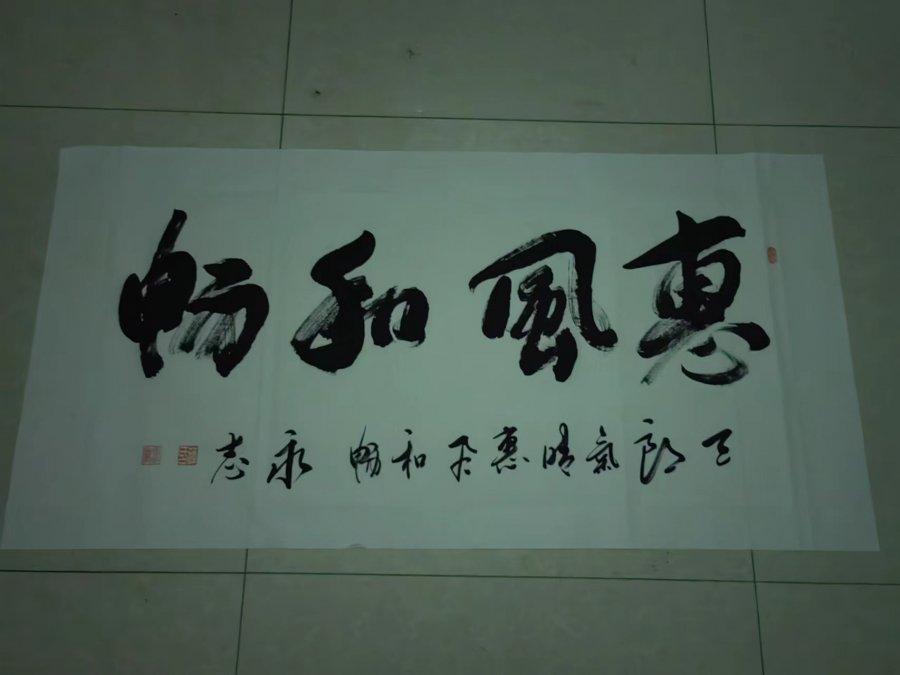 惠風和暢
天朗氣晴惠風和暢 永志